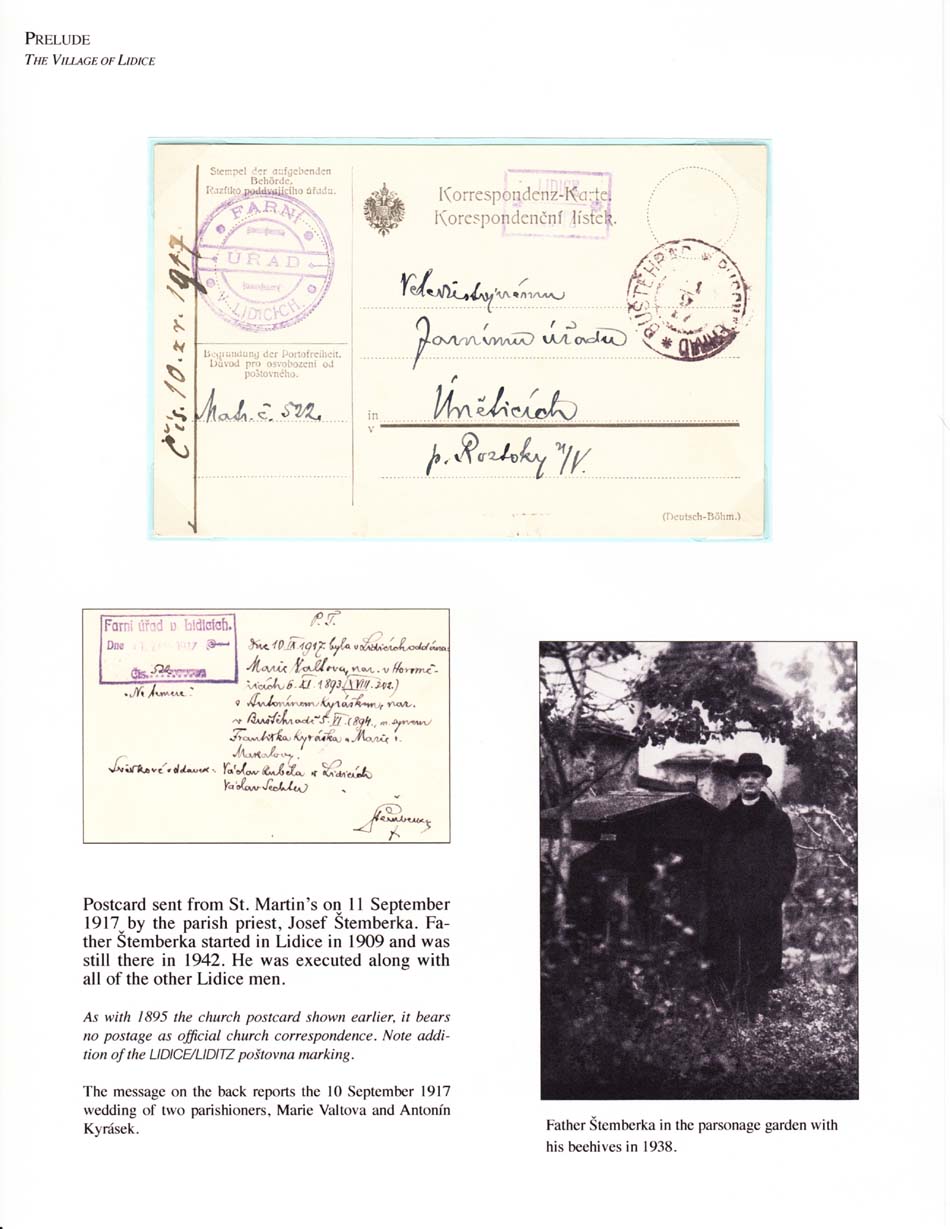 PRELUDE
THE VILLAGE OF LIDICE
Stempel der aufgebenden
Behörde.
Razítko poddvajícího úřadu.
FARNÍ
ÚŘAD
V LIDICÍCH.
Čís. 10. zr. 1917.
Korrespondenz-Karte.
Korespondenční lístek.
LIDICE
BUŠTĚHRAD
Farnímu úřadu
Begründung der Portofreiheit.
Důvod pro osvobození od
poštovného.
Matr. č. 522.
in
v
Úněticích
p. Roztoky n/V.
(Deutsch-Böhm.)
P. T.
Farní úřad v Lidicích.
Dne 1917
Čís. 522
Dne 10. IX. 1917. byla v Lidicích oddána
Marie Valtova, nar. v Horomě-
řicích 6. XI. 1893
s Antonínem Kyráskem, nar.
v Buštěhradě 5. VI. 1894, synem
Františka Kyráska a Marie r.
Svědkové oddavek: Václav Kubela z Lidic
Václav Sechter
Štemberka
Postcard sent from St. Martin's on 11 September
1917 by the parish priest, Josef Štemberka. Fa-
ther Štemberka started in Lidice in 1909 and was
still there in 1942. He was executed along with
all of the other Lidice men.
As with 1895 the church postcard shown earlier, it bears
no postage as official church correspondence. Note addi-
tion of the LIDICE/LIDITZ poštovna marking.
The message on the back reports the 10 September 1917
wedding of two parishioners, Marie Valtova and Antonín
Kyrásek.
Father Štemberka in the parsonage garden with
his beehives in 1938.